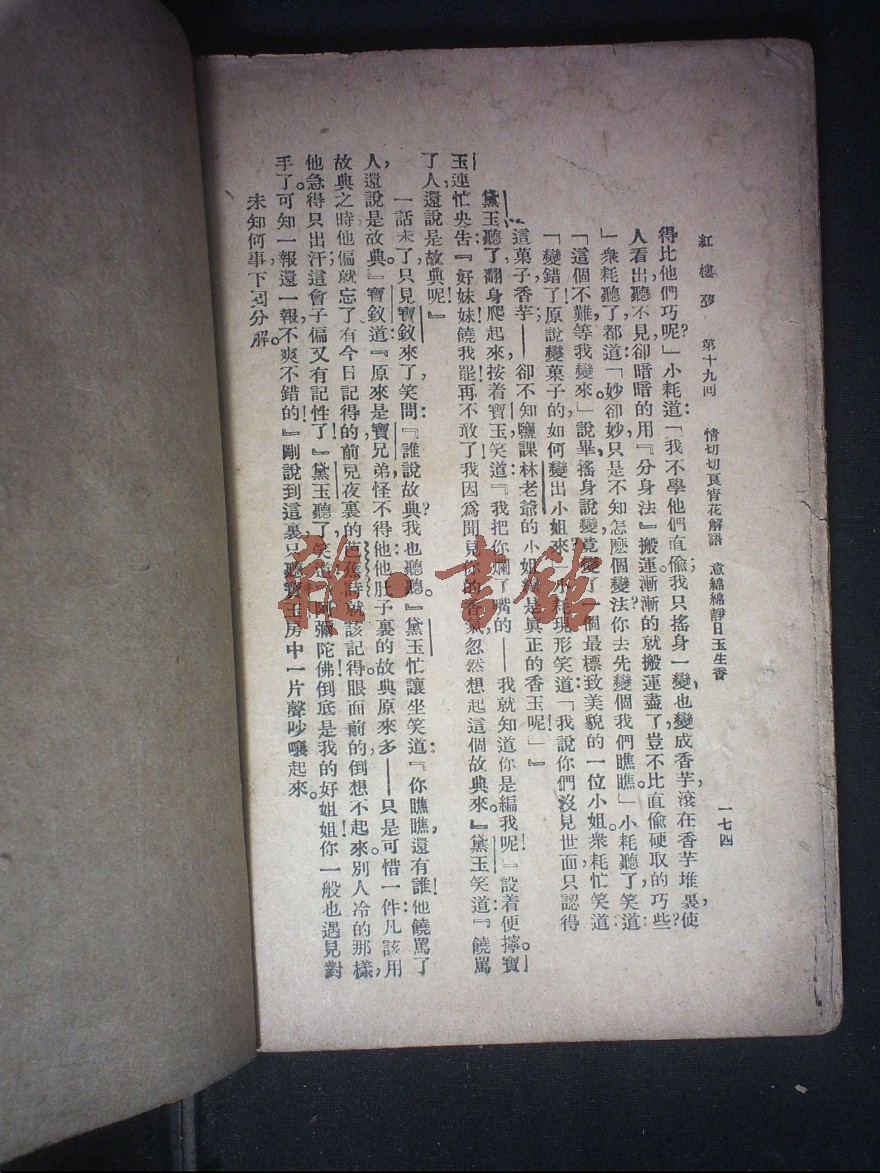 紅樓夢 第十九回 情切切良宵花解語 意綿綿靜日玉生香 一七四
得比他們巧呢？」小耗道：「我不學他們直偷，我只搖身一變，也變成香芋，滾在香芋堆裏，使
人看出聽不見，卻暗暗的用『分身法』搬運，漸漸的就搬運盡了：豈不比直偷硬取的巧些？
」衆耗聽了，都道：「妙卻妙，只是不知怎麼個變法？你去先變個我們瞧瞧。」小耗聽了，笑道：
「這個不難，等我變來。」說畢，搖身說變，竟變了一個最標致美貌的一位小姐。衆耗忙笑道：
「變錯了！原說變菓子的，如何變出小姐來？」小耗現形笑道：「我說你們沒見世面，只認得
這菓子香芋；——卻不知鹽課林老爺的小姐纔是真正的香玉呢！」』
黛玉聽了，翻身爬起來，按着寶玉笑道：『我把你爛了嘴的！——我就知道你是編我呢！』說着便擰。寶
玉連忙央告：『好妹妹，饒我罷！再不敢了！我因爲聞見你的香氣，忽然想起這個故典來。』黛玉笑道：『饒罵
了人，還說是故典呢！』
一話未了，只見寶釵來了，笑問：『誰說故典？我也聽聽。』黛玉忙讓坐，笑道：『你瞧瞧，還有誰！他饒罵了
人，還說是故典。』寶釵道：『原來是寶兄弟！怪不得他，他肚子裏的故典原來多。——只是可惜一件：凡該用
故典之時，他偏就忘了。有今日記得的，前兒夜裏的芭蕉詩就該記得，眼面前的倒想不起來。別人冷的那樣，
他急得只出汗；這會子偏又有記性了！』黛玉聽了，笑道：『阿彌陀佛！倒底是我的好姐姐！你一般也遇見對
手了。可知一報還一報，不爽不錯的！』剛說到這裏，只聽寶玉房中一片聲吵嚷起來。
未知何事，下回分解。
雜·書館